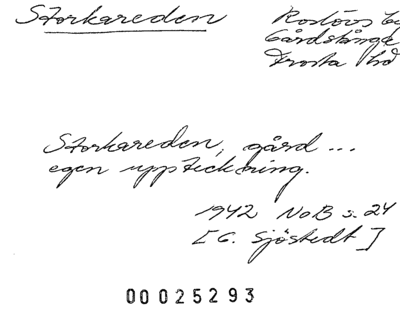 Storkareden
Rostövs
Gårdstånga
Frosta hd
Storkareden, gård ...
egen uppteckning.
1942 NoB s. 24
[G. Sjöstedt]
00025293